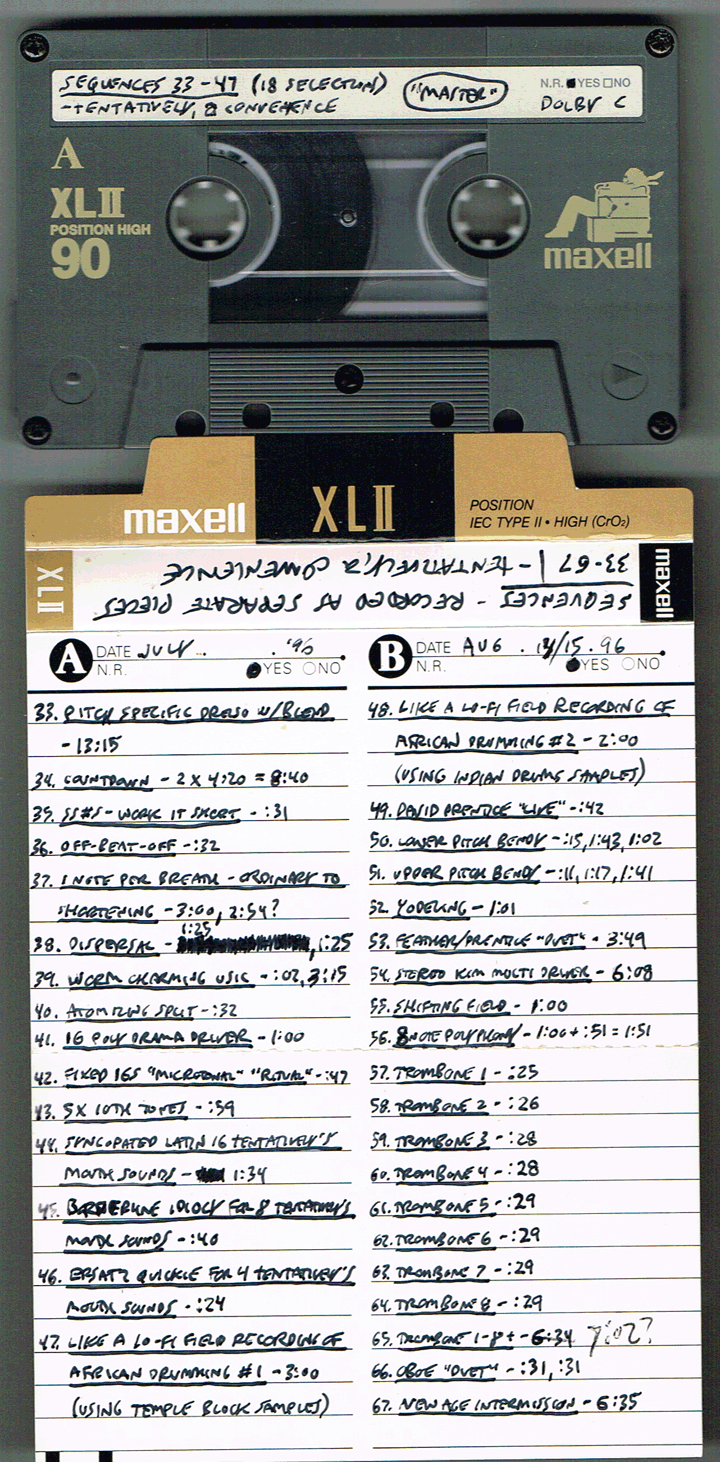 SEQUENCES 33-47 (18 SELECTIONS)
-TENTATIVELY, A CONVENIENCE
"MASTER"
N.R. ■YES □NO
DOLBY C
A
XLII
POSITION HIGH
90
maxell
maxell
XLII
POSITION
IEC TYPE II • HIGH (CrO2)
XLII
SEQUENCES - RECORDED AS SEPARATE PIECES
33-67 - TENTATIVELY, A CONVENIENCE
maxell
A DATE JULY . . '96
N.R. ●YES ○NO
33. PITCH SPECIFIC W/BLEND
- 13:15
34. COUNTDOWN - 2 X 4:20 = 8:40
35. SS#5 - WORK IT SHORT - :31
36. OFF-BEAT-OFF - :32
37. 1 NOTE PER BREATH - ORDINARY TO
SHORTENING - 3:00, 2:54?
1:25
38. DISPERSAL - , 1:25
39. WORM CHARMING USIC - :02, 3:15
40. ATOMIZING SPLIT - :32
41. 16 POLY DRAMA DRIVER - 1:00
42. FIXED 16S "MICROTONAL" "RITUAL" - :47
43. 5X 10TH TONES - :59
44. SYNCOPATED LATIN 16 TENTATIVELY'S
MOUTH SOUNDS - 1:34
45. BORDERLINE IDIOCY FOR 8 TENTATIVELY'S
MOUTH SOUNDS - :40
46. ERSATZ QUICKIE FOR 4 TENTATIVELY'S
MOUTH SOUNDS - :24
47. LIKE A LO-FI FIELD RECORDING OF
AFRICAN DRUMMING #1 - 3:00
(USING TEMPLE BLOCK SAMPLES)
B DATE AUG . 14/15 . 96
N.R. ●YES ○NO
48. LIKE A LO-FI FIELD RECORDING OF
AFRICAN DRUMMING #2 - 2:00
(USING INDIAN DRUMS SAMPLES)
49. DAVID PRENTICE "LIVE" - :42
50. LOWER PITCH BENDY - :15, 1:43, 1:02
51. UPPER PITCH BENDY - :11, 1:17, 1:41
52. YODELING - 1:01
53. FEATHER/PRENTICE "DUET" - 3:49
54. STEREO KIM MULTI DRIVER - 6:08
55. SHIFTING FIELD - 1:00
56. 8 NOTE POLYPHONY - 1:00 + :51 = 1:51
57. TROMBONE 1 - :25
58. TROMBONE 2 - :26
59. TROMBONE 3 - :28
60. TROMBONE 4 - :28
61. TROMBONE 5 - :29
62. TROMBONE 6 - :29
63. TROMBONE 7 - :29
64. TROMBONE 8 - :29
65. TROMBONE 1-8+ - 6:34 7:02?
66. OBOE "DUET" - :31, :31
67. NEW AGE INTERMISSION - 6:35